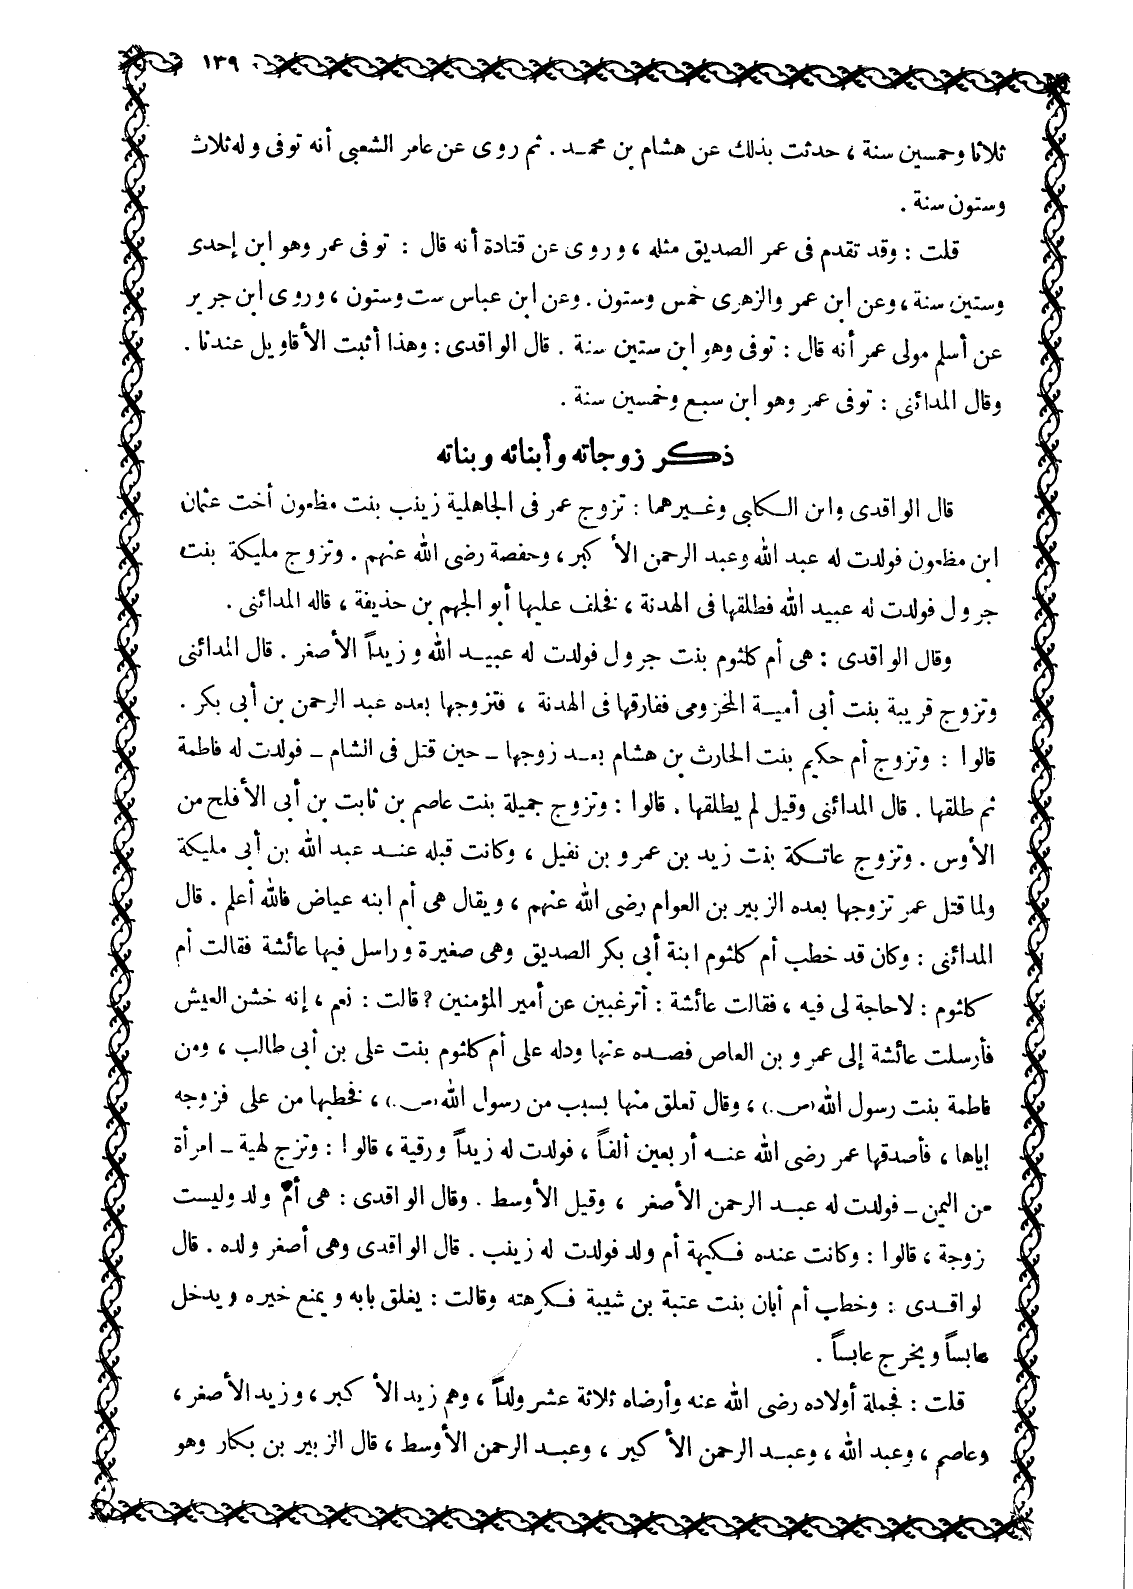 ١٣٩
ثلاثا وخمسين سنة ، حدثت بذلك عن هشام بن محمد . ثم روى عن عامر الشعبى أنه توفى وله ثلاث
وستون سنة .
قلت : وقد تقدم فى عمر الصديق مثله ، وروى عن قتادة أنه قال : توفى عمر وهو ابن إحدى
وستين سنة ، وعن ابن عمر والزهرى خمس وستون . وعن ابن عباس ست وستون ، وروى ابن جرير
عن أسلم مولى عمر أنه قال : توفى وهو ابن ستين سنة . قال الواقدى : وهذا أثبت الأقاويل عندنا .
وقال المدائنى : توفى عمر وهو ابن سبع وخمسين سنة .
ذكر زوجاته وأبنائه وبناته
قال الواقدى وابن الكابى وغيرهما : تزوج عمر فى الجاهلية زينب بنت مظعون أخت عثمان
ابن مظعون فولدت له عبد الله وعبد الرحمن الأكبر ، وحفصة رضى الله عنهم . وتزوج مليكة بنت
جرول فولدت له عبيد الله فطلقها فى الهدنة ، فخلف عليها أبو الجهم بن حذيفة ، قاله المدائنى .
وقال الواقدى : هى أم كلثوم بنت جرول فولدت له عبيد الله وزيداً الأصغر . قال المدائنى
وتزوج قريبة بنت أبى أمية المخزومى ففارقها فى الهدنة ، فتزوجها بعده عبد الرحمن بن أبى بكر .
قالوا : وتزوج أم حكيم بنت الحارث بن هشام بعد زوجها ــ حين قتل فى الشام ــ فولدت له فاطمة
ثم طلقها . قال المدائنى وقيل لم يطلقها . قالوا : وتزوج جميلة بنت عاصم بن ثابت بن أبى الأفلح من
الأوس . وتزوج عاتكة بنت زيد بن عمرو بن نفيل ، وكانت قبله عند عبد الله بن أبى مليكة
ولما قتل عمر تزوجها بعده الزبير بن العوام رضى الله عنهم ، ويقال هى أم ابنه عياض فالله أعلم . قال
المدائنى : وكان قد خطب أم كلثوم ابنة أبى بكر الصديق وهى صغيرة وراسل فيها عائشة فقالت أم
كلثوم : لا حاجة لى فيه ، فقالت عائشة : أترغبين عن أمير المؤمنين ? قالت : نعم ، إنه خشن العيش
فأرسلت عائشة إلى عمرو بن العاص فصده عنها ودله على أم كلثوم بنت على بن أبى طالب ، ومن
فاطمة بنت رسول الله (ص.) ، وقال تعلق منها بسبب من رسول الله (ص.) ، فخطبها من على فزوجه
إياها ، فأصدقها عمر رضى الله عنه أربعين ألفاً ، فولدت له زيداً ورقية ، قالوا : وتزج لهية ــ امرأة
من اليمن ــ فولدت له عبد الرحمن الأصغر ، وقيل الأوسط . وقال الواقدى : هى أم ولد وليست
زوجة ، قالوا : وكانت عنده فكيهة أم ولد فولدت له زينب . قال الواقدى وهى أصغر ولده . قال
لواقدى : وخطب أم أبان بنت عتبة بن شيبة فكرهته وقالت : يغلق بابه ويمنع خيره ويدخل
عابساً ويخرج عابساً .
قلت : فجملة أولاده رضى الله عنه وأرضاه ثلاثة عشر ولداً ، وهم زيد الأكبر ، وزيد الأصغر ،
وعاصم ، وعبد الله ، وعبد الرحمن الأكبر ، وعبد الرحمن الأوسط ، قال الزبير بن بكار وهو